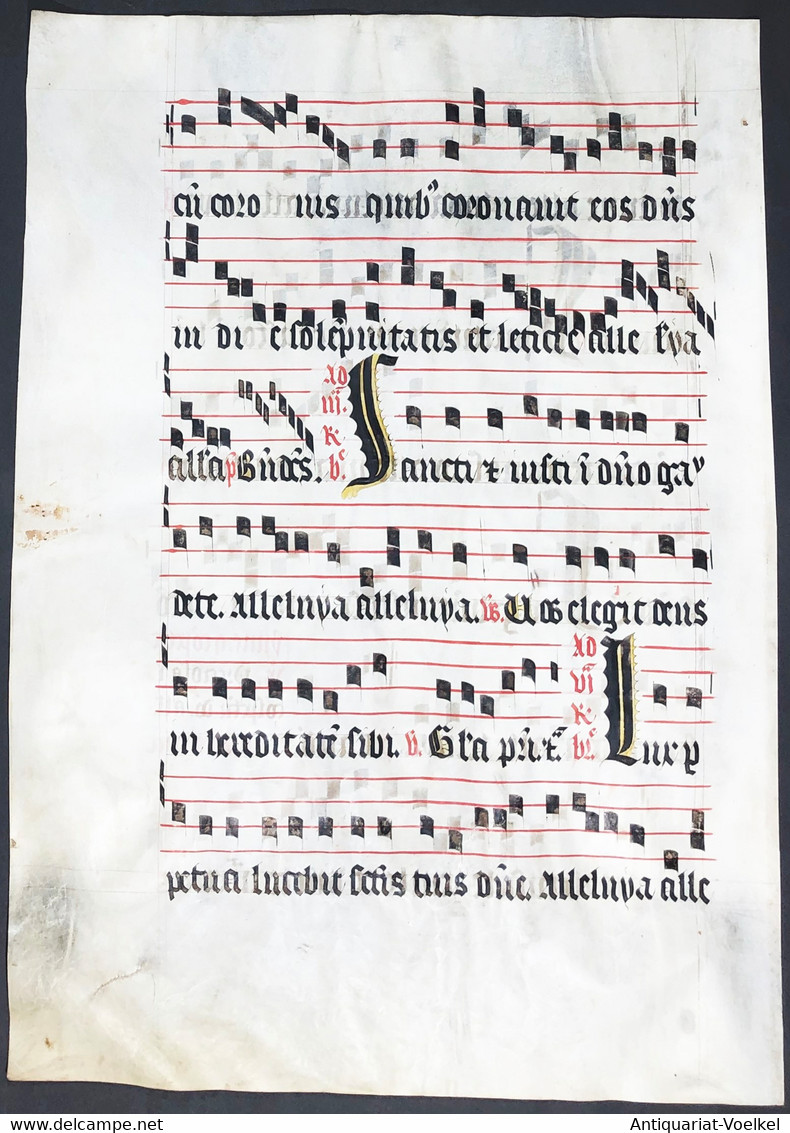 cū coro nis quib⁹ coronauit eos dn̄s
in di e solēpnitatis et leticie alle luya
all'a p̄ Bn̄dc̄s. Ad iij. R. b^e. Sancti ⁊ iusti ī dn̄o ga^v
dete. Alleluya alleluya. v̄s. Uos elegit deus
in hereditatē sibi. v. Gl'a pr̄i. ⁊. Ad vi R. b^e. Lux ꝑ
petua lucebit sc̄tīs tuis dn̄e. Alleluya alle
Antiquariat-Voelkel